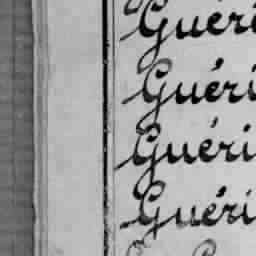 Guéri
Guéri
Guéri
Guéri